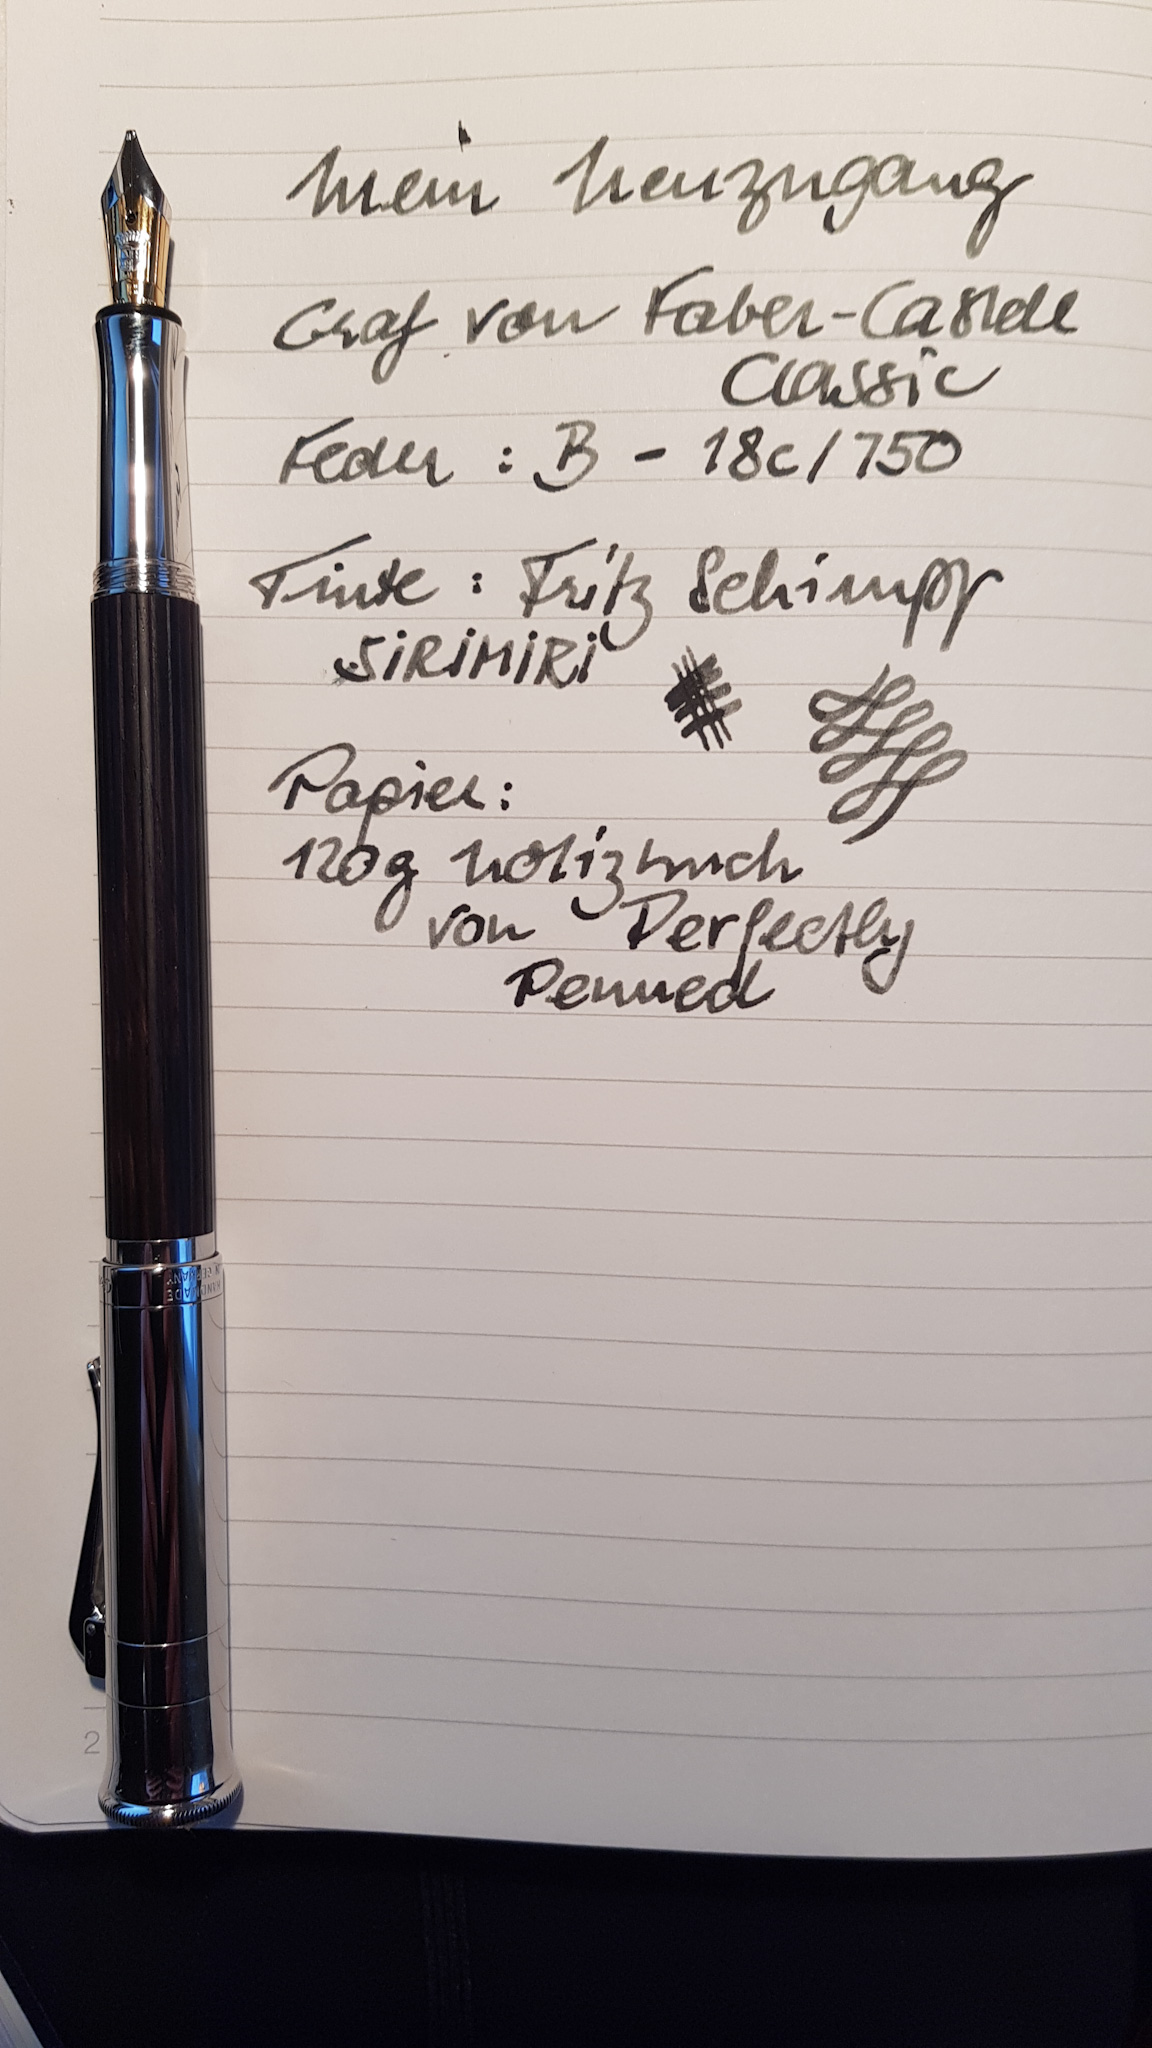 Mein Neuzugang
Graf von Faber-Castell
Classic
Feder : B - 18c/750
Tinte : Fritz Schimpf
SiRiMiRi
Papier:
120g Notizbuch
von Perfectly
Penned
HANDMADE
IN GERMANY
2